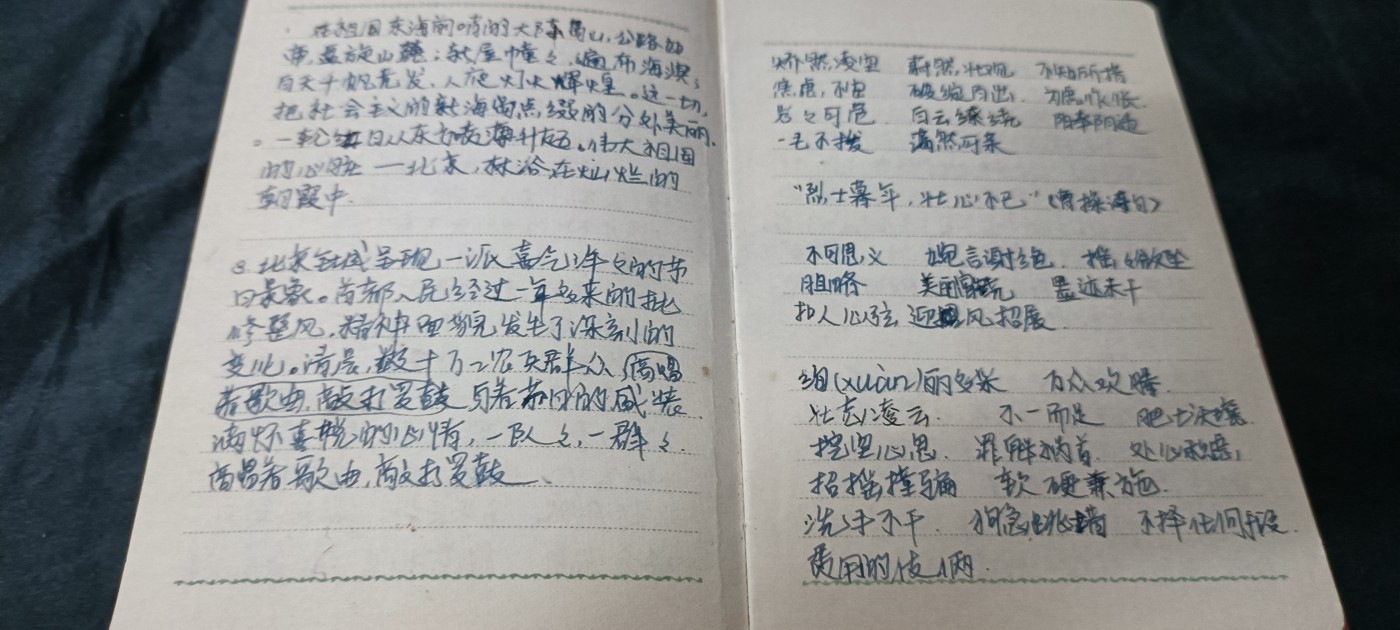 在祖国东海前哨的大陈岛,公路如
带,盘旋山麓;新屋幢々,遍布海澳;
白天千帆竞发,入夜灯火辉煌。这一切,
把社会主义的新海岛点缀的分外美丽.
。一轮红日从东方冉冉升起。伟大祖国
的心脏——北京,沐浴在灿烂的
朝霞中.
北京全城呈现一派喜气洋々的节
日景象。首都人民经过一年多来的批
修整风,精神面貌发生了深刻的
变化。清晨,数十万工农兵群众,高唱
着歌曲,敲打罗鼓 穿着节日的盛装
满怀喜悦的心情,一队々,一群々.
高唱着歌曲,敲打罗鼓、
矫然凌空 蔚然壮观 不知所措
焦虑,不因 破绽百出, 为虎作伥
岌々可危 白云缭绕 阳奉阴违
一毛不拔 蔼然可亲
“烈士暮年,壮心不已”(曹操诗句)
不可思义 婉言谢绝 摇々欲坠
胆略 美丽富饶 墨迹未干
扣人心弦 迎风招展
绚(xuàn)丽的多采 万众欢腾
壮志凌云. 不一而足 肥土沃壤.
挖空心思. 罪魁祸首. 处心积虑,
招摇撞骗 软硬兼施.
洗手不干. 狗急跳墙 不择任何手段.
费用的伎俩.